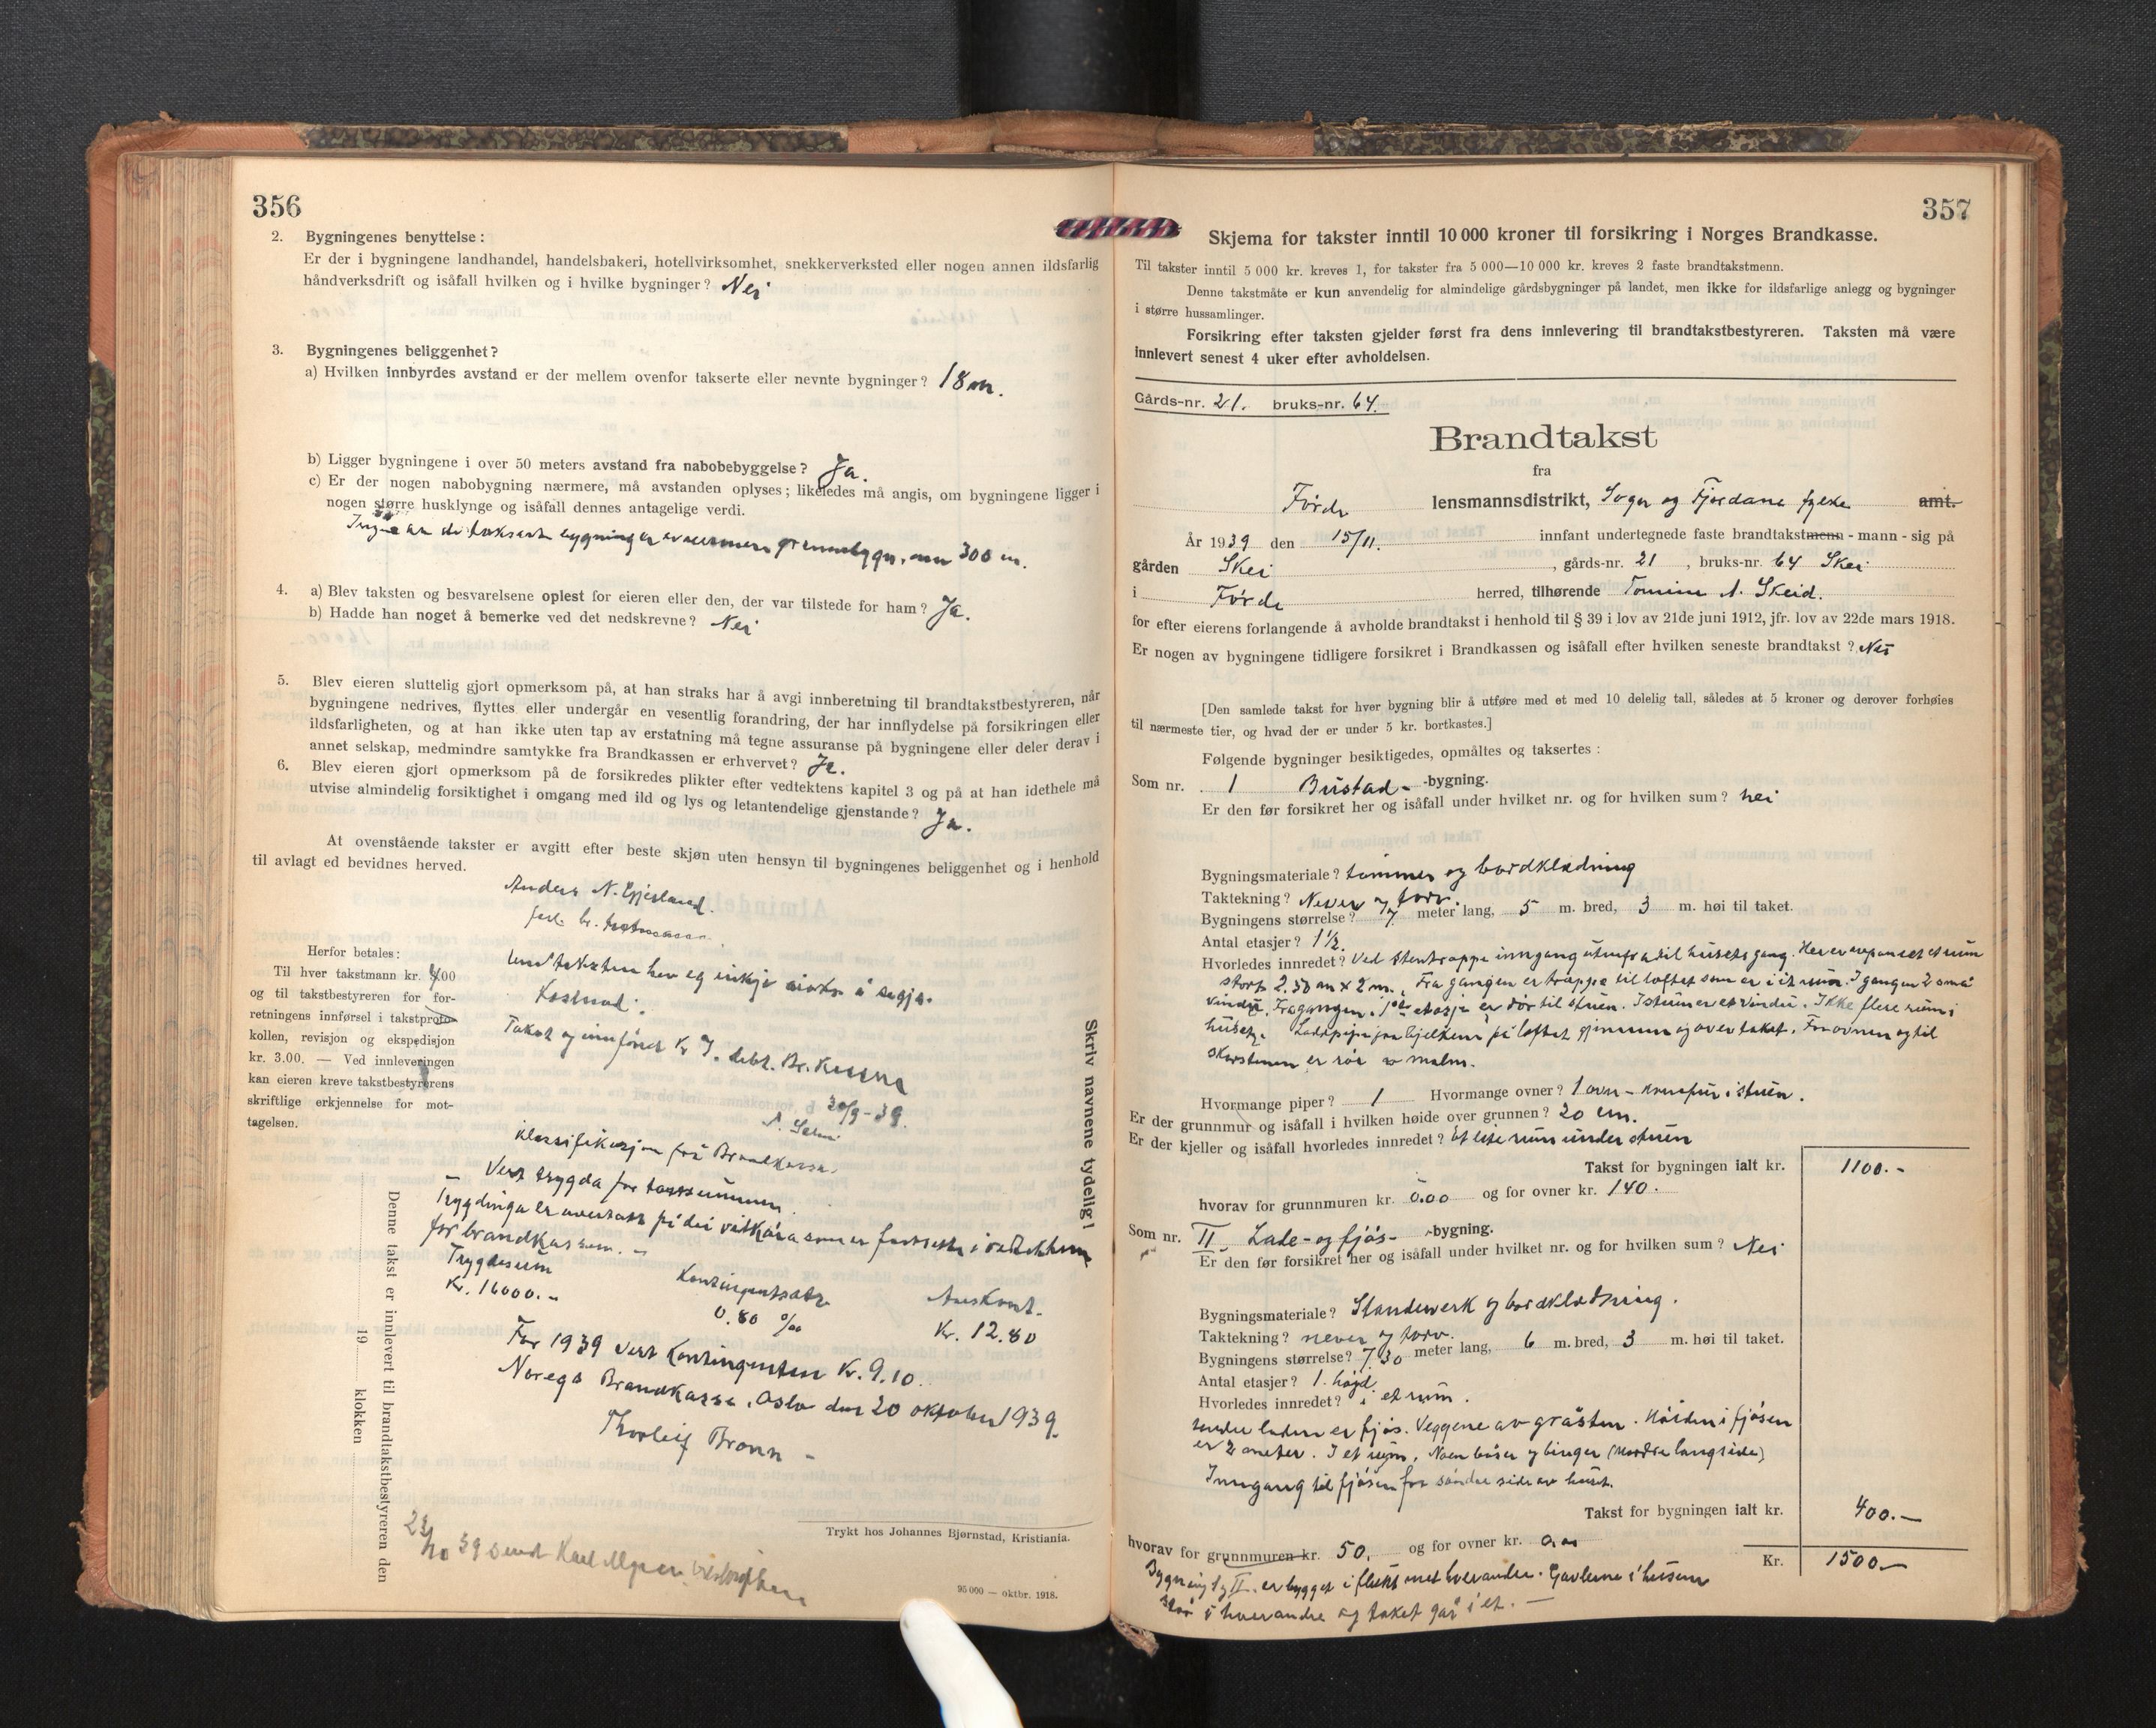 356
2. Bygningenes benyttelse:
Er der i bygningene landhandel, handelsbakeri, hotellvirksomhet, snekkerverksted eller nogen annen ildsfarlig
håndverksdrift og isåfall hvilken og i hvilke bygninger? Nei
3. Bygningenes beliggenhet?
a) Hvilken innbyrdes avstand er der mellem ovenfor takserte eller nevnte bygninger? 18 m.
b) Ligger bygningene i over 50 meters avstand fra nabobebyggelse? Ja.
c) Er der nogen nabobygning nærmere, må avstanden oplyses; likeledes må angis, om bygningene ligger i
nogen større husklynge og isåfall dennes antagelige verdi.
300 m.
4. a) Blev taksten og besvarelsene oplest for eieren eller den, der var tilstede for ham? Ja.
b) Hadde han noget å bemerke ved det nedskrevne? Nei
5. Blev eieren sluttelig gjort opmerksom på, at han straks har å avgi innberetning til brandtakstbestyreren, når
bygningene nedrives, flyttes eller undergår en vesentlig forandring, der har innflydelse på forsikringen eller
ildsfarligheten, og at han ikke uten tap av erstatning må tegne assuranse på bygningene eller deler derav i
annet selskap, medmindre samtykke fra Brandkassen er erhvervet? Ja.
6. Blev eieren gjort opmerksom på de forsikredes plikter efter vedtektens kapitel 3 og på at han idethele må
utvise almindelig forsiktighet i omgang med ild og lys og letantendelige gjenstande? Ja.
At ovenstående takster er avgitt efter beste skjøn uten hensyn til bygningenes beliggenhet og i henhold
til avlagt ed bevidnes herved.
Anders N.
Herfor betales:
Til hver takstmann kr. 400
og til takstbestyreren for for-
retningens innførsel i takstproto-
kollen, revisjon og ekspedisjon
kr. 3.00. — Ved innleveringen
kan eieren kreve takstbestyrerens
skriftlige erkjennelse for mot-
tagelsen.
taksten hev eg inkje å segja.
Takst og innført Kr 7.
20/9-39.
klassifikasjon frå Brandkassa.
Vert trygda for
Trygdinga er på dei vilkåra som er fastsette i
for brandkassen. -
Trygdesum Kontingentsats
Kr. 16000.- 0.80 ‰ Kr. 12.80
For 1939 vert kontingenten Kr. 9.10.
Noregs Brandkasse. Oslo den 20 oktober 1939.
Thorleif
39 sendt Karl
Skriv navnene tydelig!
Denne takst er innlevert til brandtakstbestyreren den
19 klokken
Trykt hos Johannes Bjørnstad, Kristiania.
95 000 — oktbr. 1918.
357
Skjema for takster inntil 10 000 kroner til forsikring i Norges Brandkasse.
Til takster inntil 5 000 kr. kreves 1, for takster fra 5 000—10 000 kr. kreves 2 faste brandtakstmenn.
Denne takstmåte er kun anvendelig for almindelige gårdsbygninger på landet, men ikke for ildsfarlige anlegg og bygninger
i større hussamlinger.
Forsikring efter taksten gjelder først fra dens innlevering til brandtakstbestyreren. Taksten må være
innlevert senest 4 uker efter avholdelsen.
Gårds-nr. 21. bruks-nr. 64.
Brandtakst
fra
Førde lensmannsdistrikt, Sogn og Fjordane fylke amt.
År 1939 den 15/11. innfant undertegnede faste brandtakstmenn - mann - sig på
gården Skei, gårds-nr. 21, bruks-nr. 64 Skei
i Førde herred, tilhørende Tomine A. Skeid.
for efter eierens forlangende å avholde brandtakst i henhold til § 39 i lov av 21de juni 1912, jfr. lov av 22de mars 1918.
Er nogen av bygningene tidligere forsikret i Brandkassen og isåfall efter hvilken seneste brandtakst? Nei
[Den samlede takst for hver bygning blir å utføre med et med 10 delelig tall, således at 5 kroner og derover forhøies
til nærmeste tier, og hvad der er under 5 kr. bortkastes.]
Følgende bygninger besiktigedes, opmåltes og taksertes:
Som nr. 1 Bustad- -bygning.
Er den før forsikret her og isåfall under hvilket nr. og for hvilken sum? nei
Bygningsmateriale? tømmer og bordkledning
Taktekning? Never og torv.
Bygningens størrelse? 7 meter lang, 5 m. bred, 3 m. høi til taket.
Antal etasjer? 1 1/2.
Hvorledes innredet? Ved stentrappe inngang utenfra til husets gang. Her er avpanelet et rum
stort 2.50 m x 2 m. Fra gangen er trappe til loftet som er i et rum. I gangen 2 små
vindu. Fra gangen i 1ste etasje er dør til stuen. I stuen er et vindu. Ikke flere rum i
huset. på loftet gjennem og over taket. Fra ovnen og til
skorstenen er rør av malm.
Hvormange piper? 1 Hvormange ovner? 1 ovn - i stuen.
Er der grunnmur og isåfall i hvilken høide over grunnen? 20 cm.
Er der kjeller og isåfall hvorledes innredet? Et lite rum under stuen
Takst for bygningen ialt kr. 1100.-
hvorav for grunnmuren kr. 0.00 og for ovner kr. 140.
Som nr. II. Lade- og fjøs- -bygning.
Er den før forsikret her og isåfall under hvilket nr. og for hvilken sum? Nei
Bygningsmateriale? Standerverk og bordkledning.
Taktekning? never og torv.
Bygningens størrelse? 7.30 meter lang, 6 m. bred, 3 m. høi til taket.
Antal etasjer? 1. høgd.
Hvorledes innredet? i et rum.
under laden er fjøs. Veggene av gråsten. Høiden i fjøsen
er 2 meter. I et rum. Noen båser og binger (nordre langside)
Inngang til fjøsen fra søndre side av huset.
Takst for bygningen ialt kr. 400.—
hvorav for grunnmuren kr. 50. og for ovner kr. 0.00
Kr. 1500.—
Bygning I og II. er bygget i flukt med hverandre. Gavlerne i husene
står i hverandre og taket går i et. —